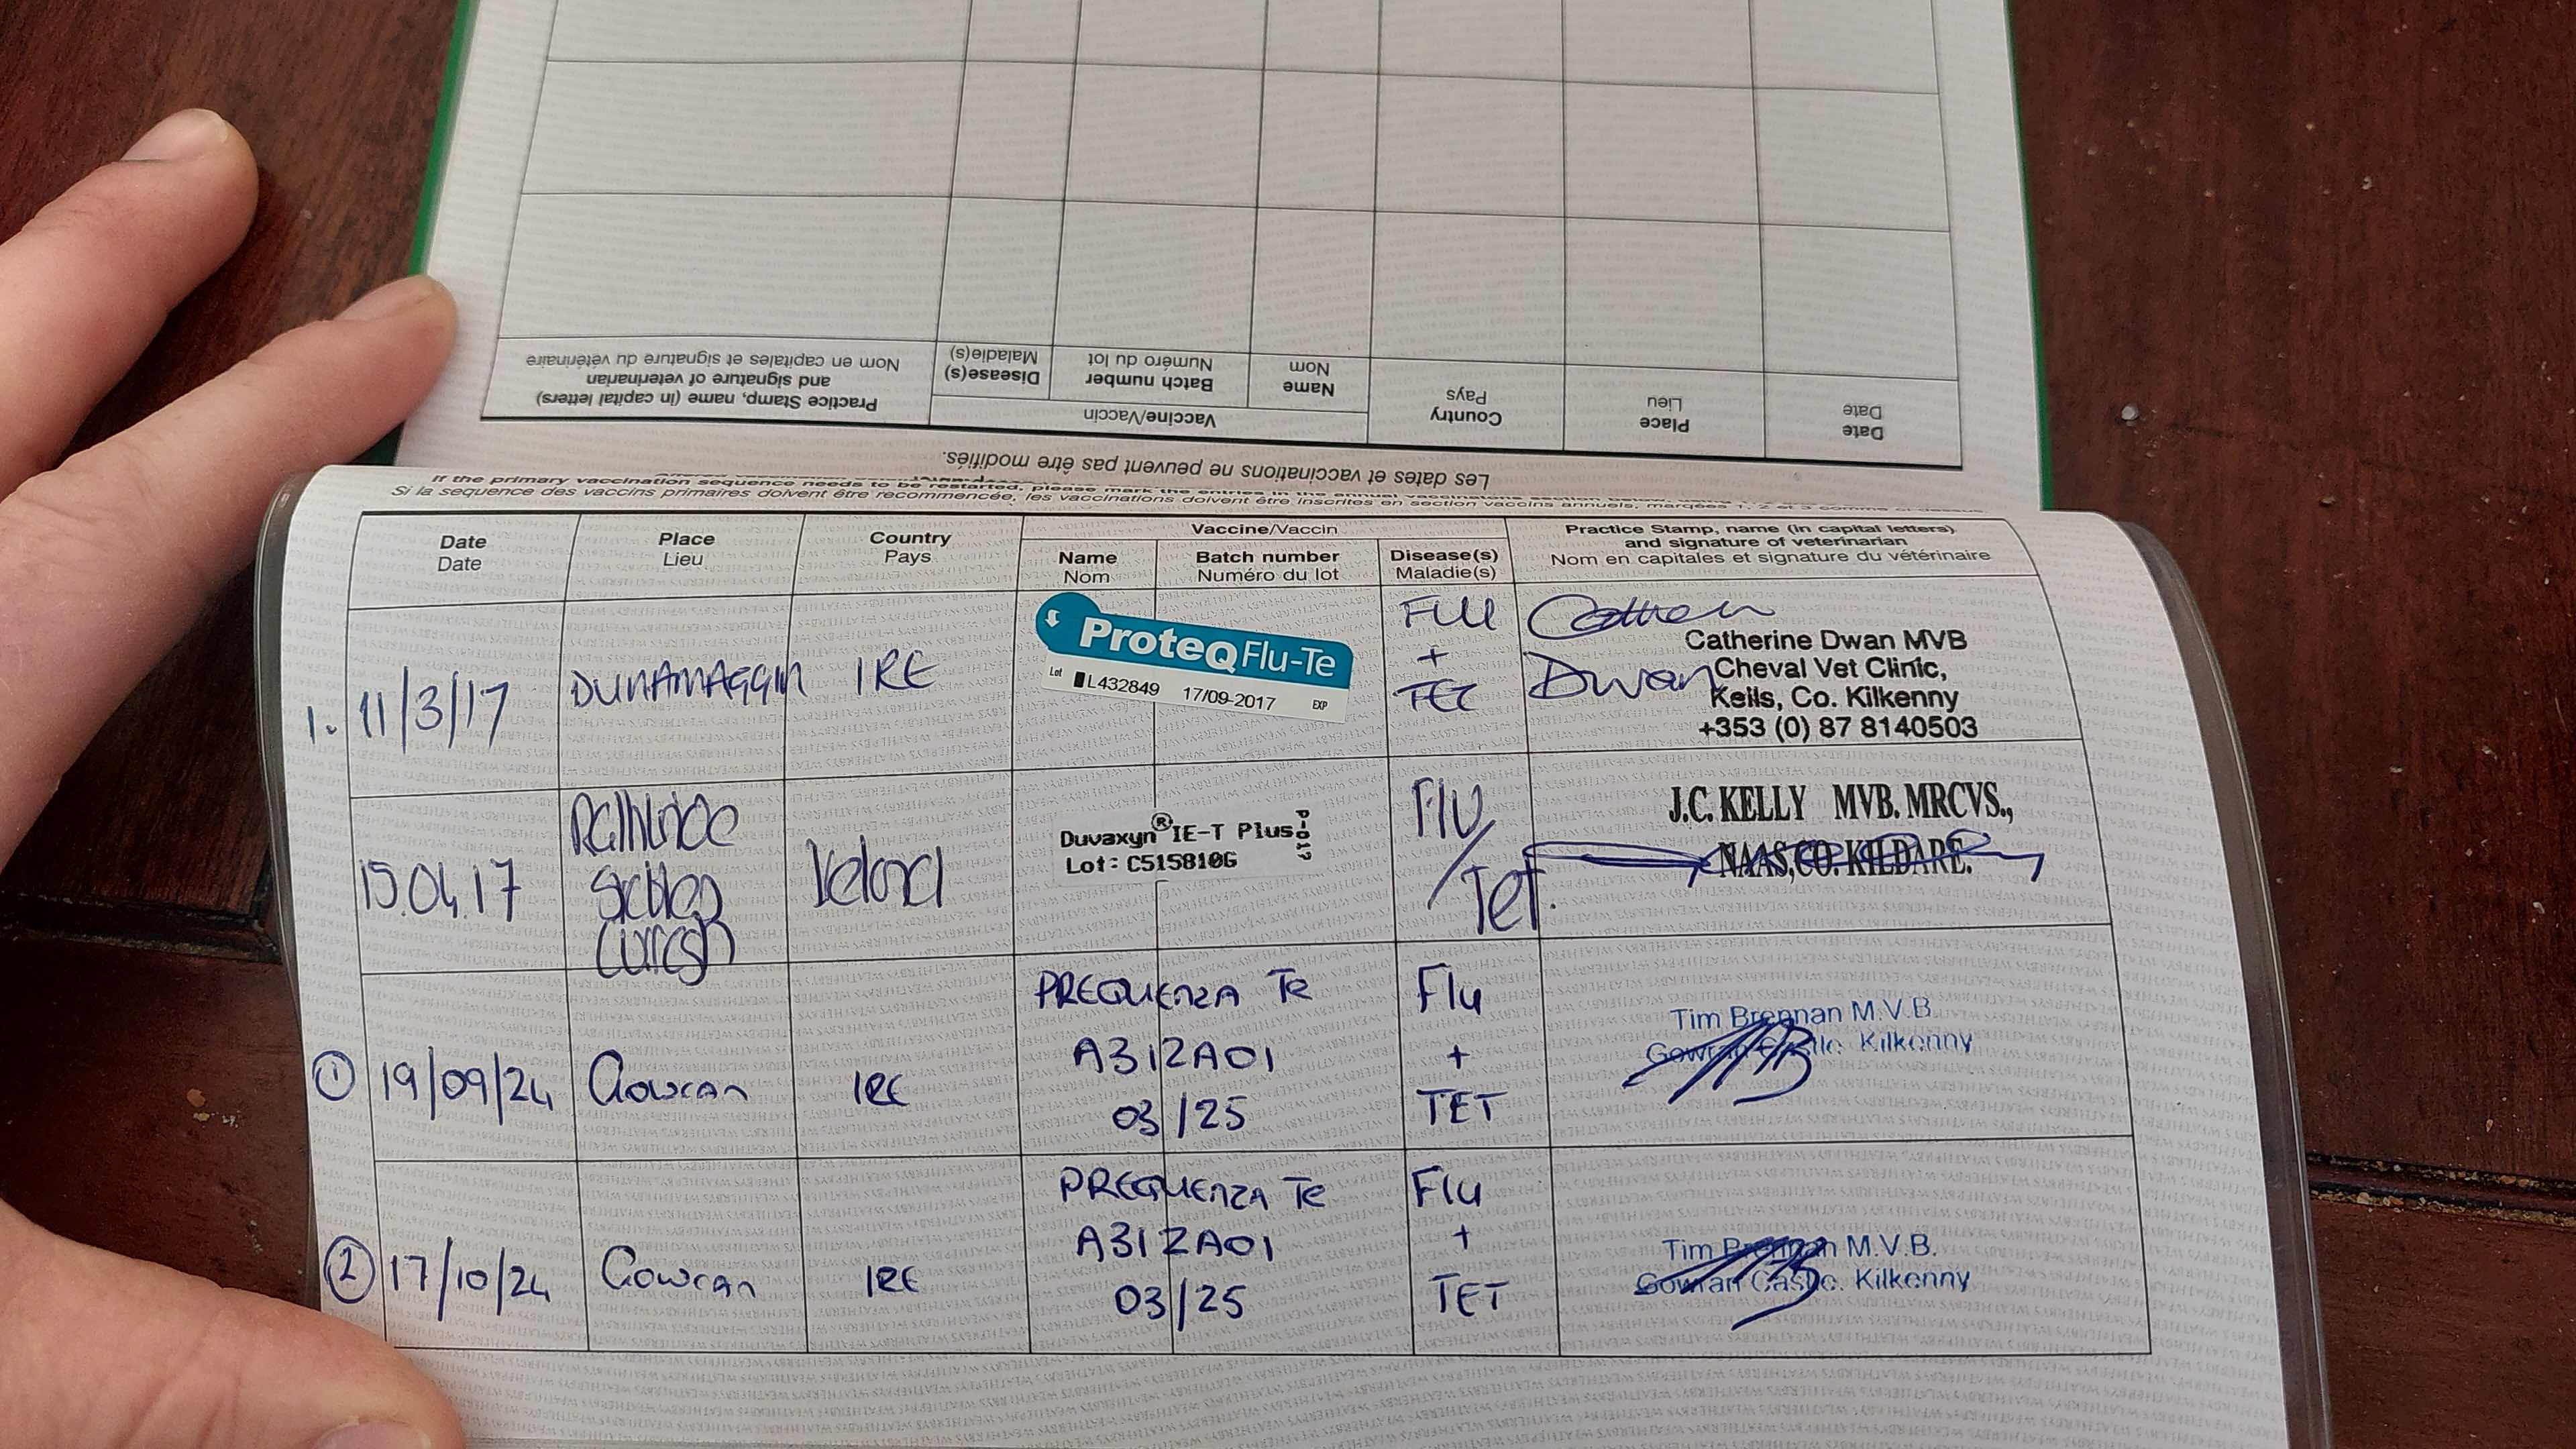 Practice Stamp, name (in capital letters)
and signature of veterinarian
Nom en capitales et signature du vétérinaire
Vaccine/Vaccin
Disease(s)
Maladie(s)
Batch number
Numéro du lot
Name
Nom
Country
Pays
Place
Lieu
Date
Date
Les dates et vaccinations ne peuvent pas être modifiés.
If the primary vaccination sequence needs to be restarted, please mark the entries in the annual vaccinations section below,
Si la sequence des vaccins primaires doivent être recommencée, les vaccinations doivent être inscrites en section vaccins annuels, marqées 1, 2 et 3 comme ci-dessus
Date
Date
Place
Lieu
Country
Pays
Vaccine/Vaccin
Name
Nom
Batch number
Numéro du lot
Disease(s)
Maladie(s)
Practice Stamp, name (in capital letters)
and signature of veterinarian
Nom en capitales et signature du vétérinaire
1. 11/3/17
DUNAMAGGIN
IRE
ProteqFlu-Te
Lot L432849 17/09-2017 EXP
FLU
+
TET
Catherine
Dwan
Catherine Dwan MVB
Cheval Vet Clinic,
Kells, Co. Kilkenny
+353 (0) 87 8140503
15.04.17
Rathbride
Stables
Curragh
Ireland
Duvaxyn® IE-T Plus
Lot: C515810G
Flu
/
Tet.
J.C. KELLY MVB. MRCVS.,
NAAS, CO. KILDARE.
① 19/09/24
Gowran
IRE
PREQUENZA Te
A312A01
03/25
Flu
+
TET
Tim Brennan M.V.B.
Gowran Castle. Kilkenny
② 17/10/24
Gowran
IRE
PREQUENZA Te
A312A01
03/25
Flu
+
TET
Tim Brennan M.V.B.
Gowran Castle. Kilkenny